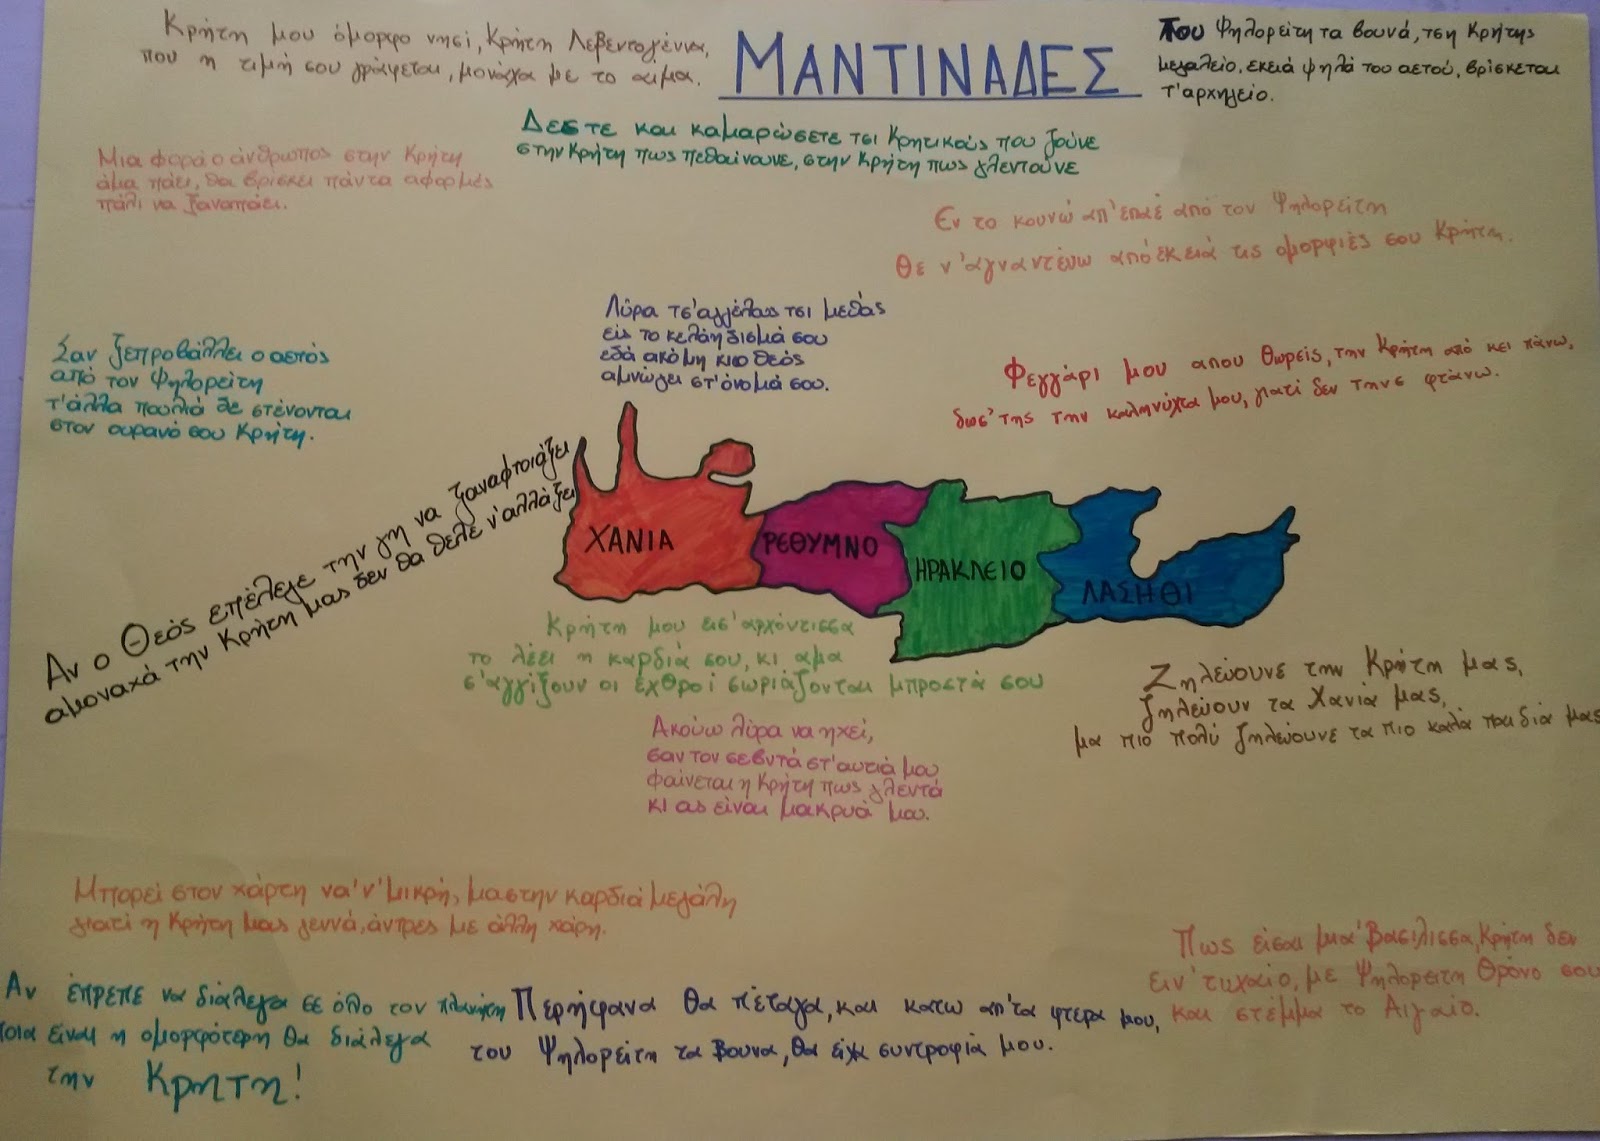 Κρήτη μου όμορφο νησί, Κρήτη Λεβεντογέννα,
που η τιμή σου γράφεται, μονάχα με το αιμα.
ΜΑΝΤΙΝΑΔΕΣ
Του Ψηλορείτη τα βουνά, τση Κρήτης
μεγαλείο, εκειά ψηλά του αετού, βρίσκεται
τ'αρχηγείο.
Δεστε και καμαρώσετε τσι Κρητικούς που ζούνε
στην Κρήτη πως πεθαίνουνε, στην Κρήτη πως γλεντούνε
Μια φορά ο άνθρωπος στην Κρήτη
άμα πάει, θα βρίσκει πάντα αφορμές
πάλι να ξαναπάει.
Εν το κουνώ απ'επαέ από τον Ψηλορείτη
Θε ν'αγναντεύω από εκειά τις ομορφιές σου Κρήτη.
Λύρα τσ'αγγέλους τσι μεθάς
εις το κελάηδισμά σου
εδά ακόμη κιο θεός
αμνώγει στ'όνομά σου.
Σαν ξεπροβάλλει ο αετός
από τον Ψηλορείτη
τ'άλλα πουλιά δε στένονται
στον ουρανό σου Κρήτη.
Φεγγάρι μου απου θωρείς, την Κρήτη από κει πάνω,
δωσ' της την καληνύχτα μου, γιατί δεν τηνε φτάνω.
Αν ο Θεός επέλεγε την γη να ξαναφτοιάξει
αμοναχά την Κρήτη μας δεν θα θελε ν'αλλάξει
ΧΑΝΙΑ
ΡΕΘΥΜΝΟ
ΗΡΑΚΛΕΙΟ
ΛΑΣΗΘΙ
Κρήτη μου εισ'αρχόντισσα
το λέει η καρδιά σου, κι αμα
σ'αγγίζουν οι έχθροί σωριάζονται μπροστά σου
Ζηλεύουνε την Κρήτη μας,
ζηλεύουν τα Χανιά μας,
μα πιο πολύ ζηλεύουνε τα πιο καλά παιδιά μας
Ακούω λύρα να ηχεί,
σαν τον σεβντά στ'αυτιά μου
φαίνεται η Κρήτη πως γλεντά
κι ας είναι μακρυά μου.
Μπορεί στον χάρτη να'ν'μικρή, μα στην καρδιά μεγάλη
γιατί η Κρήτη μας γεννά, άντρες με άλλη χάρη.
Πως είσαι μια'Βασίλισσα, Κρήτη δεν
ειν'τυχαίο, με Ψηλορειτη Θρόνο σου
και στέμμα το Αιγαίο.
Αν έπρεπε να διάλεγα σε όλο τον πλανήτη
ποια είναι η ομορφότερη θα διάλεγα
την Κρητη!
Περήφανα θα πέταγα, και κατω απ'τα φτερα μου,
του Ψηλορείτη τα βουνα, θα είχα συντροφιά μου.